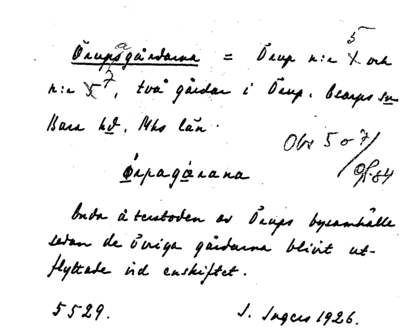 Örupagårdarna = Örup n:r 5 och
n:r 7, två gårdar i Örup, Bearps sn
Bara hd, Mhs län.
Obs 5 o 7
84
Örpagårana
Enda återstoden av Örups bysamhälle
sedan de övriga gårdarna blivit ut-
flyttade vid enskiftet.
5529. I. Ingers 1926.